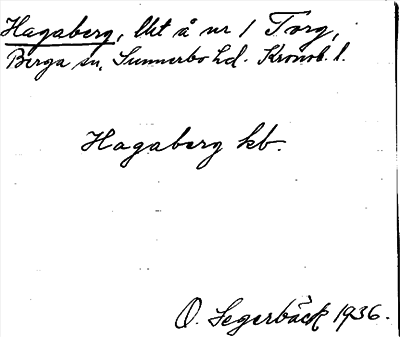 Hagaberg, lht å nr 1 Torg,
Berga sn, Sunnerbo hd. Kronob. l.
Hagaberg kb.
O. Segerbäck 1936.